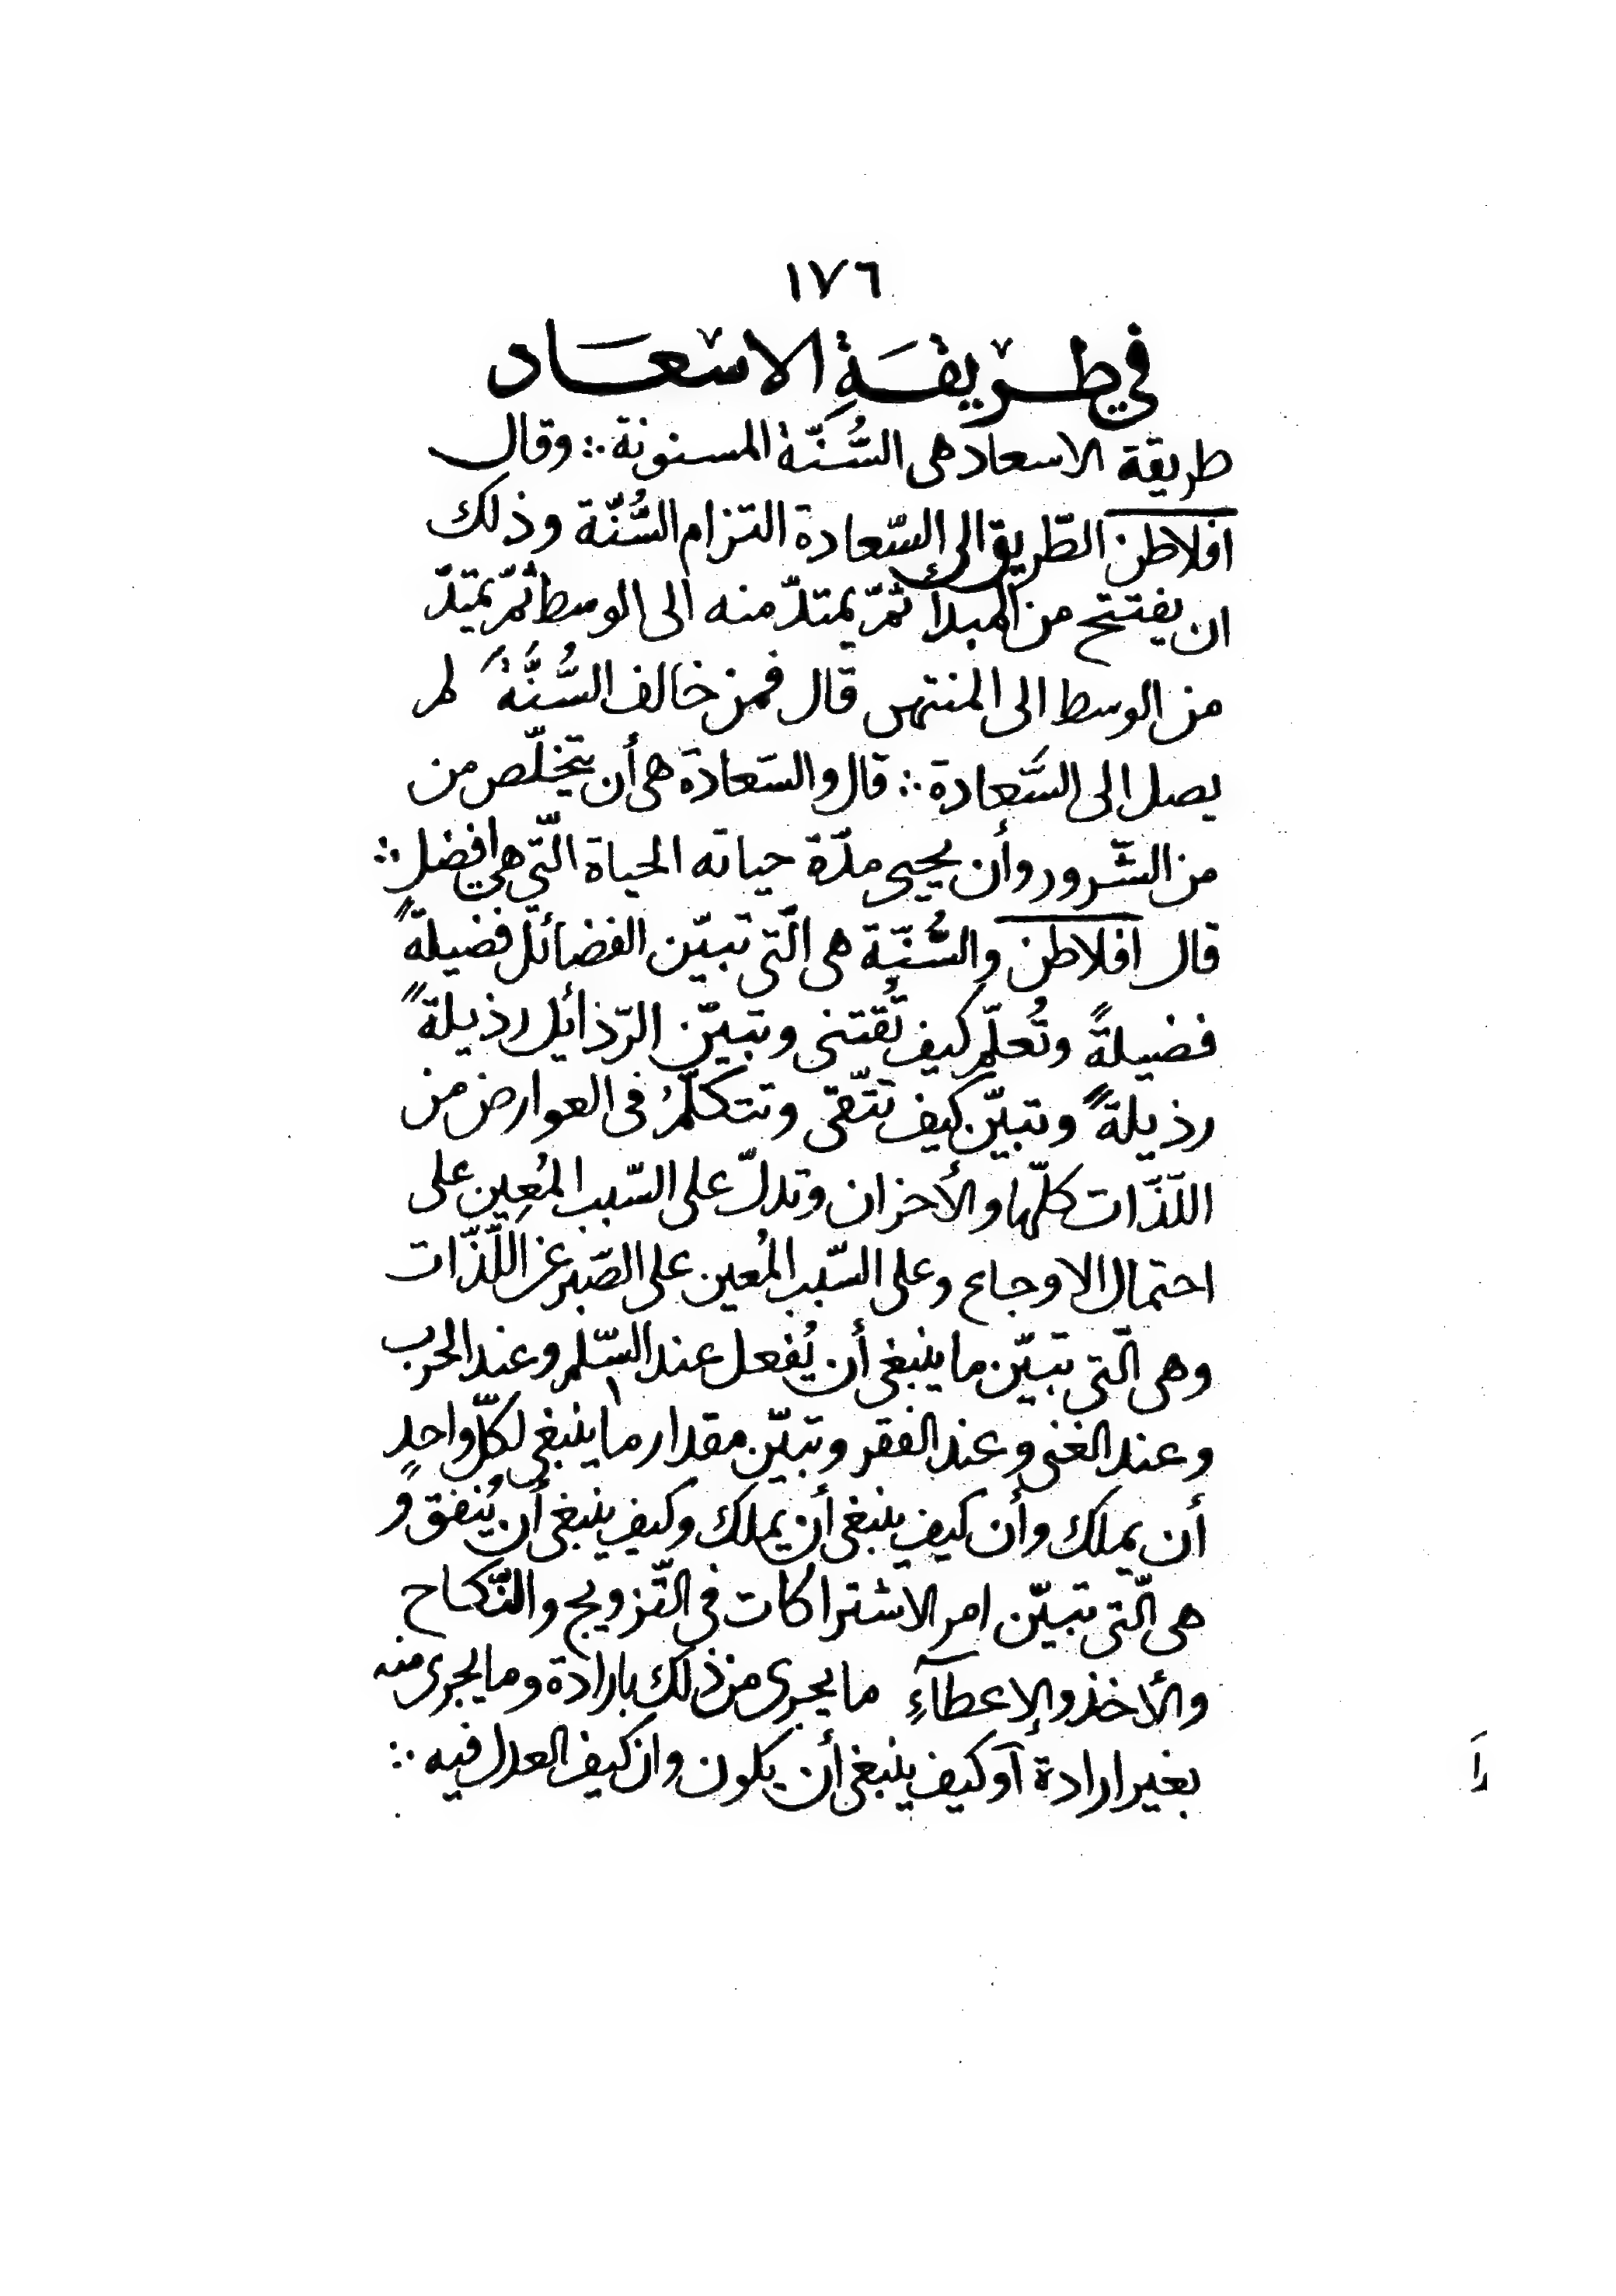 ١٧٦
في طريقةِ الاسعاد
طريقة الاسعاد هى السُّنّة المسنونة ∴ وقال
افلاطن الطّريق الى السّعادة التزام السُّنّة وذلك
ان يفتتح من المبدأ ثمّ يمتدّ منه الى الوسط ثمّ يمتدّ
من الوسط الى المنتهى قال فمن خالف السُّنَّةَ لم
يصل الى السَّعادة ∴ قال والسّعادة هى أن يتخلّص من
من الشّرور وأن يحيى مدّة حياته الحياة الّتي هي افضل ∴
قال افلاطن والسُّنّة هى الّتى تبيّن الفضائل فضيلةً
فضيلةً وتُعلّم كيف تُقتنى وتبيّن الرّذائل رذيلةً
رذيلةً وتبيّن كيف تتّقى وتتكلّمُ فى العوارض من
اللّذّات كلّها والأحزان وتدلّ على السّبب المُعِين على
احتمال الاوجاع وعلى السّبب المُعين على الصّبر عن اللّذّات
وهى الّتى تبيّن ما ينبغى أن يُفعل عند السّلم وعند الحرب
وعند الغنى وعند الفقر وتبيّن مقدار ما ينبغى لكلّ واحدٍ
أن يملك وأن كيف ينبغى أن يملك وكيف ينبغى أن يُنفق و
هى الّتى تبيّن امر الاشتراكات في التّزويج والنّكاح
والأخذ والإعطآءِ ما يجرى من ذلك بارادة وما يجرى منه
بغير ارادة آو كيف ينبغى أن يكون وان كيف العدل فيه ∴